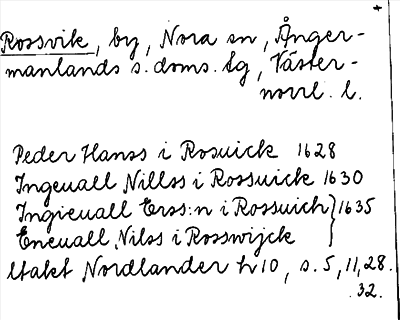 Rossvik, by, Nora sn, Ånger-
manlands s. doms. tg, Väster-
norrl. l.
Peder Hanss i Rosuick 1628
Ingeuall Nillss i Rossuick 1630
Ingieuall Erss:n i Rossuich } 1635
Eneuall Nilss i Rosswijck
Utakt Nordlander h 10, s. 5, 11, 28.
32.